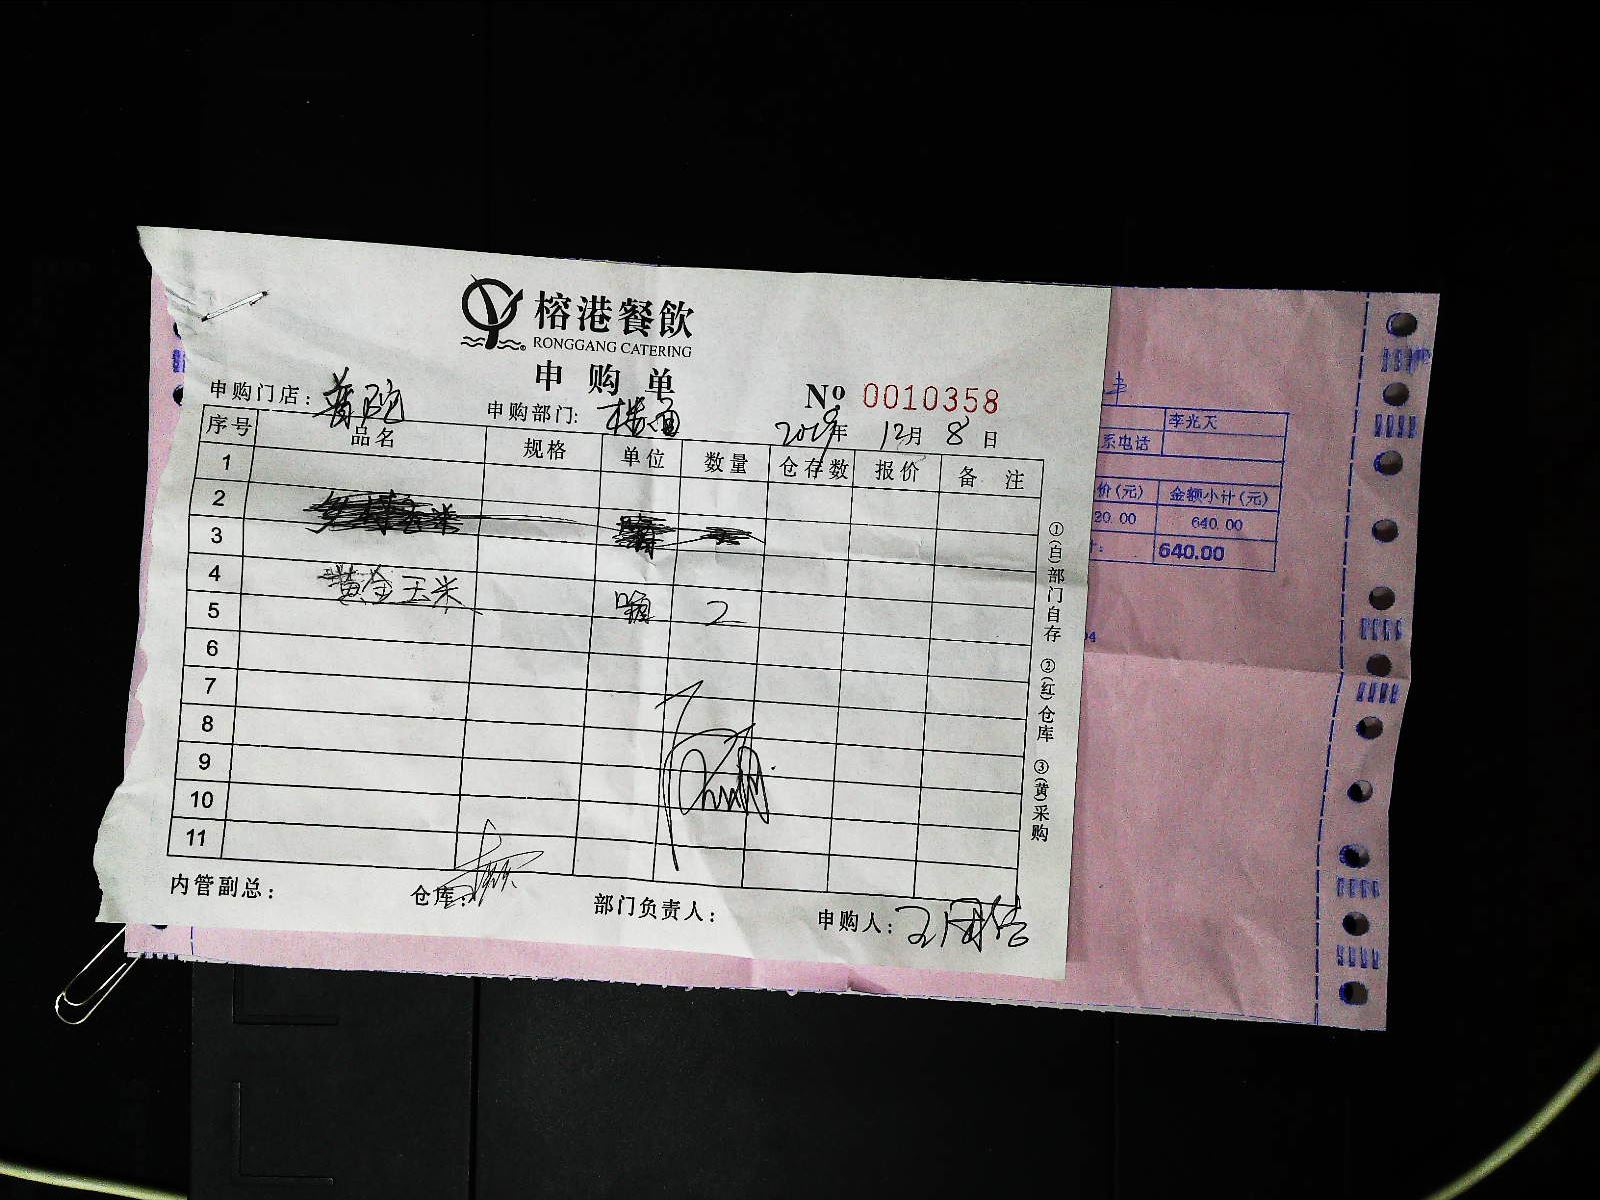 榕港餐飲
RONGGANG CATERING
申购单
No 0010358
申购门店：普陀 申购部门：楼面 2019年 12月 8日
序号 品名 规格 单位 数量 仓存数 报价 备注
1
2
3
4 黄金玉米
5 2
6
7
8
9
10
11
①(白)部门自存 ②(红)仓库 ③(黄)采购
内管副总： 仓库： 部门负责人： 申购人：
李光天
系电话
价(元) 金额小计(元)
20.00 640.00
640.00